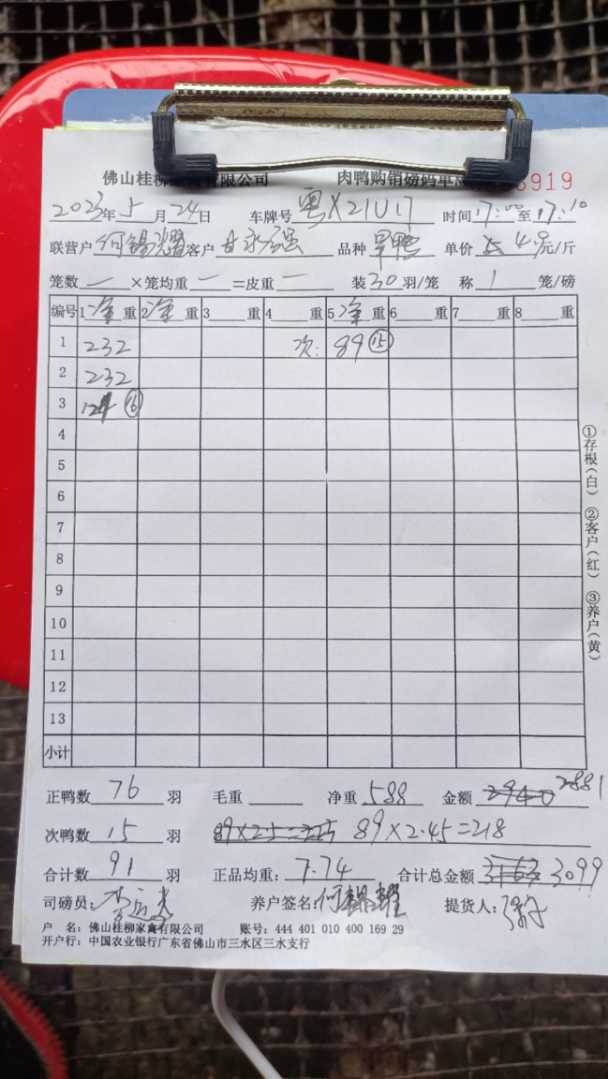 佛山桂柳家禽有限公司 肉鸭购销磅码单 8919
2023年5月24日 车牌号 粤X21U17 时间17:00至17:10
联营户 何锡耀 客户 甘永强 品种 旱鸭 单价 4.9元/斤
笼数 一 ×笼均重 一 =皮重 一 装30羽/笼 称 1 笼/磅
编号 1净重 2净重 3 重 4 重 5净重 6 重 7 重 8 重
1 232 次: 89 ⑮
2 232
3 124 ⑯
4
5
6
7
8
9
10
11
12
13
小计
①存根(白) ②客户(红) ③养户(黄)
正鸭数 76 羽 毛重 净重 588 金额 2940 2881
次鸭数 15 羽 89×2.5=225 89×2.45=218
合计数 91 羽 正品均重: 7.74 合计总金额 3163 3099
司磅员: 养户签名: 何锡耀 提货人:
户 名: 佛山桂柳家禽有限公司 账号: 444 401 010 400 169 29
开户行: 中国农业银行广东省佛山市三水区三水支行